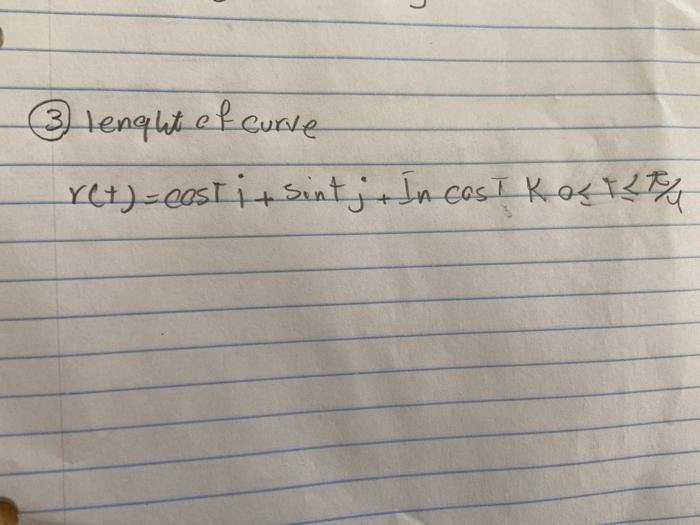 ③ lenght of curve
r(t) = cost i + sint j + In cost K 0 ≤ t ≤ π/4